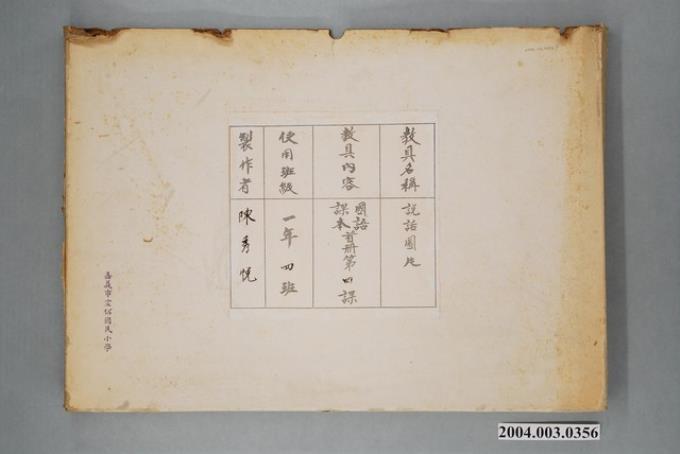 教具名稱
說話圖片
教具內容
國語
課本首冊第四課
使用班級
一年四班
製作者
陳秀悅
嘉義市宏仁國民小學
2004.003.0356